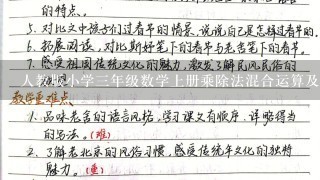 的特点。
5. 对比文中孩子们过春节的情景,说说自己是怎样过春节的.
6. 拓展阅读,对比斯妤笔下的春节与老舍笔下的春节。
7. 感受祖国传统文化的魅力,激发了解民风民俗的
人教版小学三年级数学上册乘除法混合运算及
教学重难点
1. 品味老舍的语言风格,学习课文有顺序、详略得当
的写法。(难)
2. 了解老北京的风俗习惯,感受传统年文化的独特
魅力。(重)